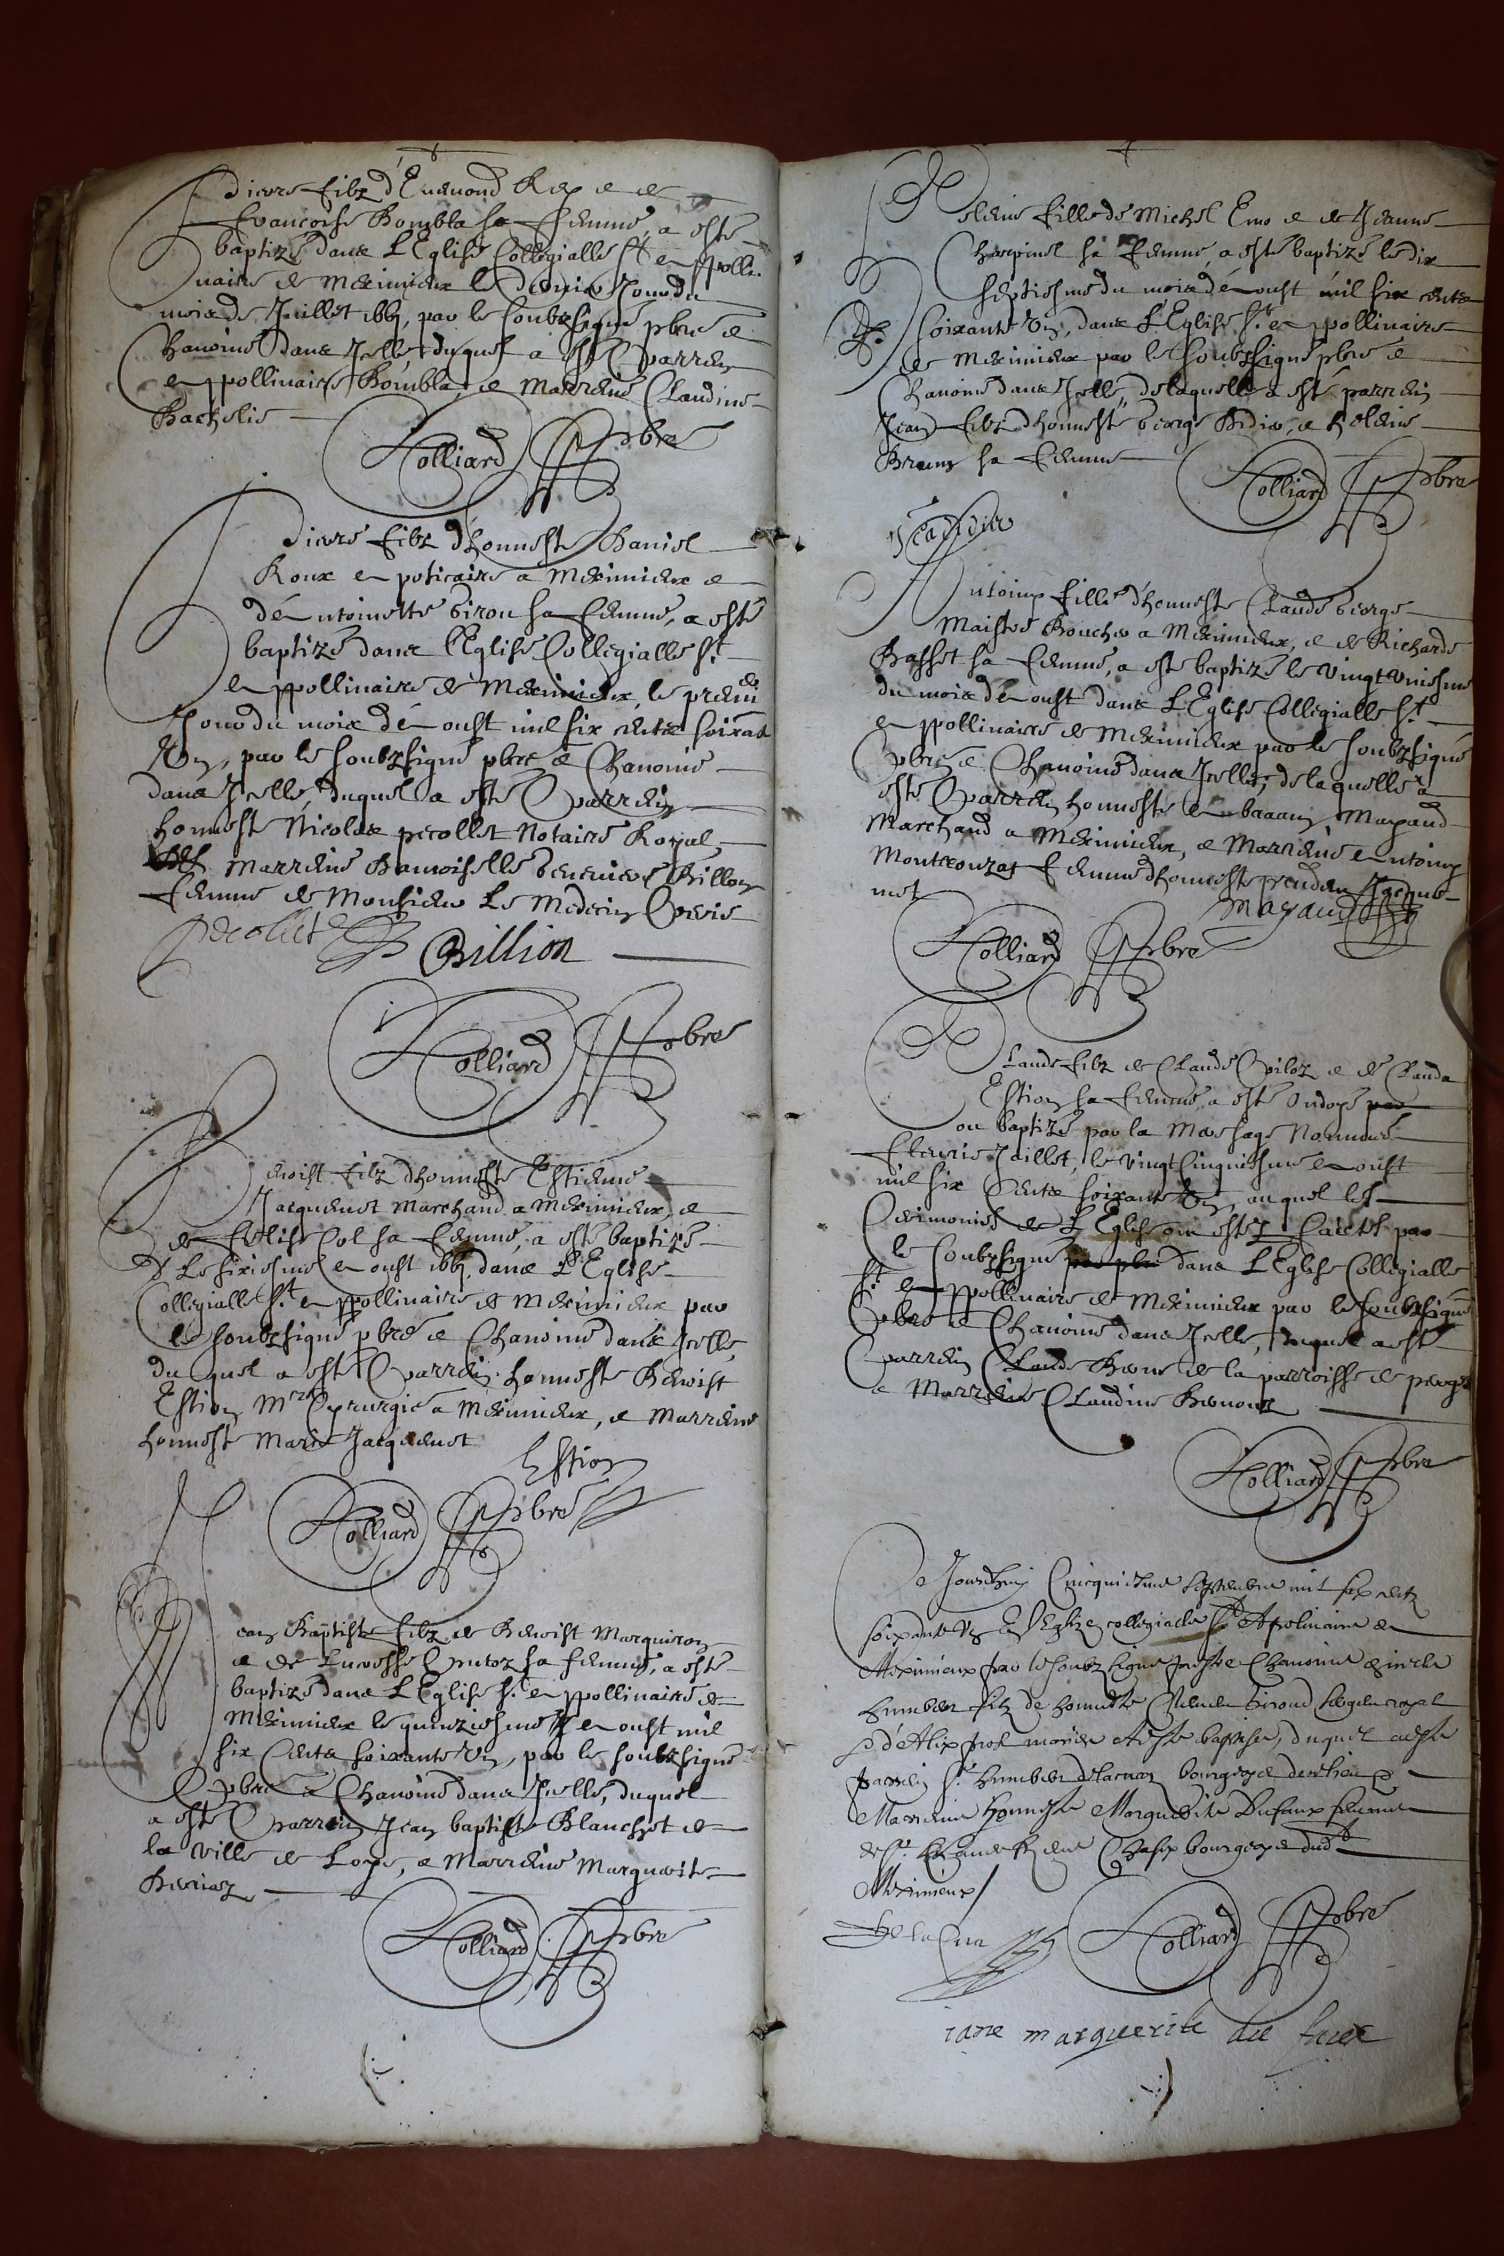 Pierre filz d'Enemond Rey et de
Francoise Bombla sa femme, a esté
baptizé dans L'Eglise Collegialle St Appolli
naire de Meximieux le dernier Jour du
mois de Juillet 1661, par le soubzsigné pbre et
Chanoine dans Jcelle, duquel a esté Parrein
Appollinaire Bombla, et Marreine Claudine
Bachelie
Tolliard Pbre
Pierre filz d'honneste Daniel
Roux Apoticaire a Meximieux et
d'Antoinette Giron sa femme, a esté
baptizé dans l'Eglise Collegialle St
Appollinaire de Meximieux, le premier
Jour du mois d'Aoust mil six cents soixante
Un, par le soubzsigné pbre et Chanoine
dans Jcelle, duquel a esté Parrein
honneste Nicolas perollet Notaire Royal,
Marreine Damoiselle Benenieve Billon
femme de Monsieur Le Medecin
perollet Billion
Tolliard Pbre
Benoist filz d'honneste Estienne
Jacquemot Marchand a Meximieux, et
de Col sa femme, a esté baptizé
Le sixiesme Aoust 1661, dans L'Eglise
Collegialle St Appollinaire de Meximieux par
le soubzsigné pbre et Chanoine dans Jcelle,
du quel a esté Parrein honneste Benoist
Estion Mre Chyrurgie a Meximieux, et Marreine
honneste Marie Jacquemot
Estion
Tolliard Pbre
Jean Baptiste filz de Benoist Marquiron
et de Lucresse sa femme, a esté
baptizé dans L'Eglise St Appollinaire de
Meximieux le quinziesme Aoust mil
six Cents soixante Un, par le soubzsigné
Pbre et Chanoine dans Jcelle, duquel
a esté Parrein Jean baptiste Blanchet de
la ville de Loye, et Marreine Marguerite
Tolliard Pbre
Heleine fille de Michel Emo et de Jeanne
Charpinel sa femme, a esté baptizé le dix
septiesme du mois d'Aoust mil six cents
Soixante Un, dans L'Eglise St Appollinaire
de Meximieux par le Soubzsigné pbre et
Chanoine dans Jcelle, de laquelle a esté parrein
Jean filz d'honneste George Didier, et Heleine
Brun sa femme
Tolliard Pbre
Jean didier
Antoine fille d'honneste Claude George
Maistre Boucher a Meximieux, et de Richarde
Basset sa femme, a este baptizé le vingt uniesme
du mois d'Aoust dans L'Eglise Collegialle St
Appollinaire de Meximieux par le soubzsigné
pbre et Chanoine dans Jcelle, de laquelle a
esté Parrein honneste Mayand
Marchand a Meximieux, et Marreine Antoine
femme d'honneste
mot
Mayaud
Tolliard Pbre
Claude filz de Claude Piloz et de Clauda
Estion sa femme, a esté Ondoyé par
ou baptizé par la Mersage Nommée
fleurie Jaillet, le vingt Cinquiesme Aoust
mil six Cents soixante Un, auquel les
Ceremonies de L'Eglise on estez faictes par
le soubzsigné dans L'Eglise Collegialle
St Appollinaire de Meximieux par le soubzsigné
Pbre et Chanoine dans Jcelle, duquel a esté
Parrein Claude de la parroisse de peroges
et Marreine Claudine
Tolliard Pbre
Ce Jourdhuy Cincquiesme Septembre mil six centz
soixante Un En L'Eglize collegialle St Apolinaire de
Meximieux par le soubz signe prestre Chanoine de icelle
humbert filz de honneste Girond royal
et d'Alix a este baptise, duquel a este
parrein Sr humbert delacuaz bourgeoys dudt lieu et
Marreine honneste Marguerite Dufaux femme
de Sr Chasip bourgeoys dudt
Meximieux
De la Cua
Tolliard Pbre
iane marguerite du faux